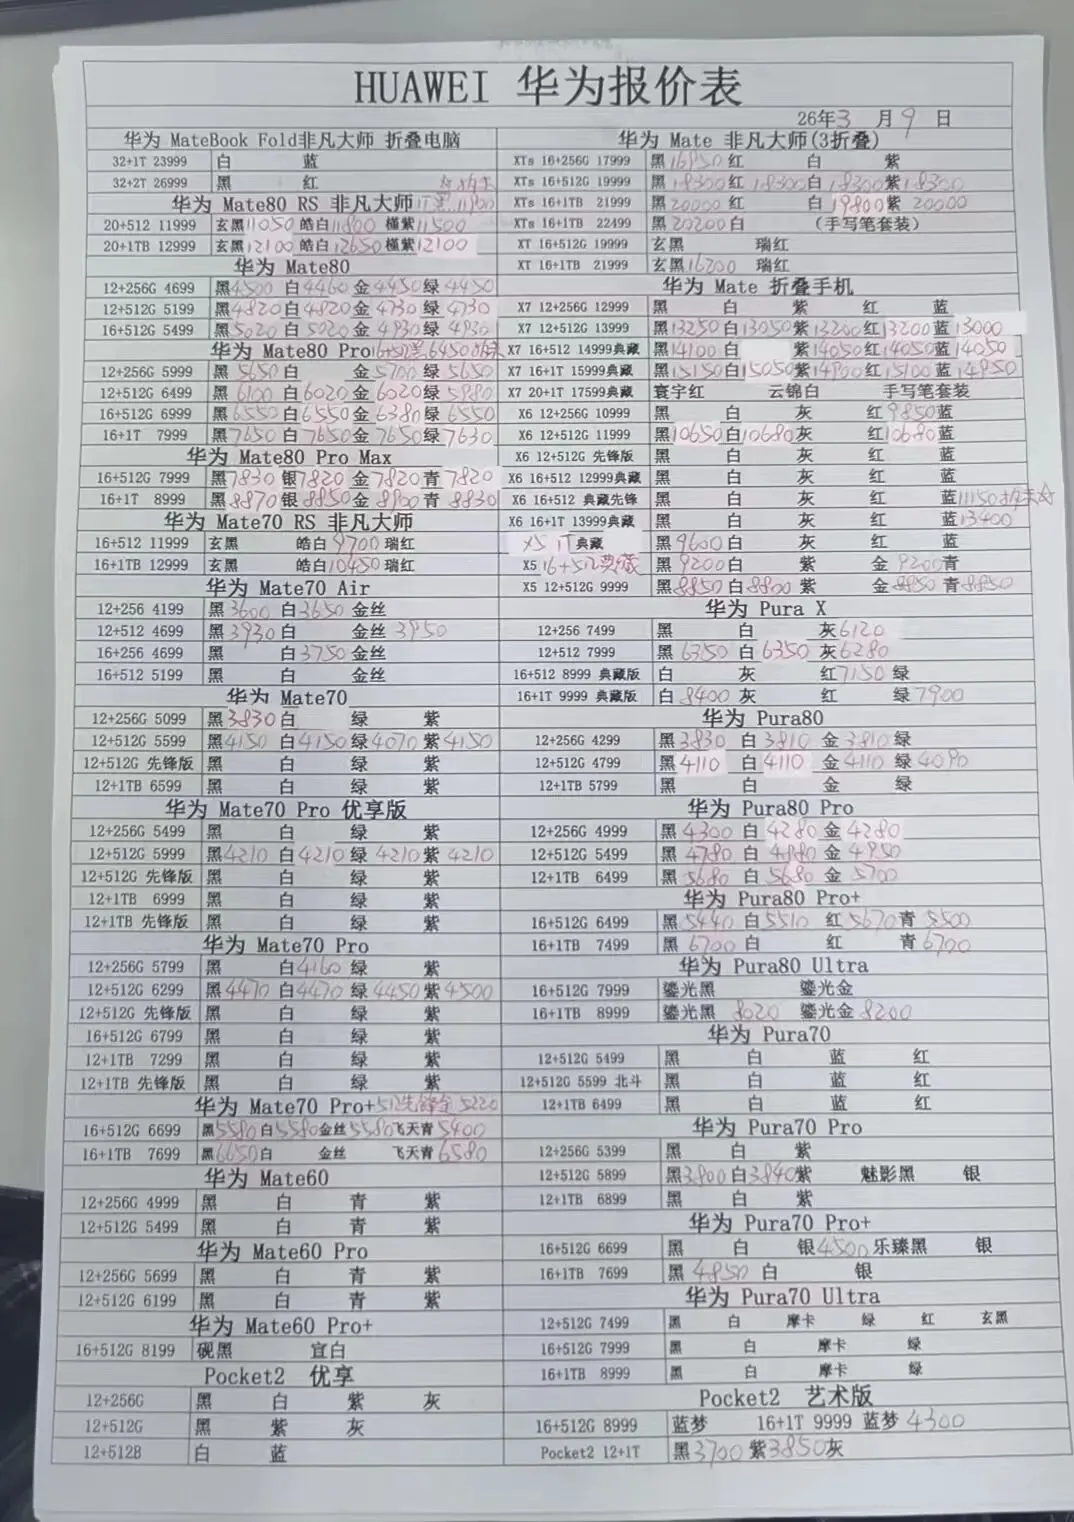 HUAWEI 华为报价表
26年3月9日
华为 MateBook Fold非凡大师 折叠电脑
32+1T 23999 白 蓝
32+2T 26999 黑 红
华为 Mate80 RS 非凡大师
20+512 11999 玄黑11050 皓白11800 槿紫11500
20+1TB 12999 玄黑12100 皓白12650 槿紫12100
华为 Mate80
12+256G 4699 黑4500 白4460 金4450 绿4450
12+512G 5199 黑4820 白4820 金4730 绿4730
16+512G 5499 黑5020 白5020 金4930 绿4930
华为 Mate80 Pro
12+256G 5999 黑5650 白 金5700 绿5650
12+512G 6499 黑6100 白6020 金6020 绿5980
16+512G 6999 黑6550 白6550 金6380 绿6550
16+1T 7999 黑7650 白7650 金7650 绿7630
华为 Mate80 Pro Max
16+512G 7999 黑7830 银7820 金7820 青7820
16+1T 8999 黑8870 银8850 金8900 青8830
华为 Mate70 RS 非凡大师
16+512 11999 玄黑 皓白9700 瑞红
16+1TB 12999 玄黑 皓白10450 瑞红
华为 Mate70 Air
12+256 4199 黑3600 白3650 金丝
12+512 4699 黑3930 白 金丝3950
16+256 4699 黑 白3750 金丝
16+512 5199 黑 白 金丝
华为 Mate70
12+256G 5099 黑3830 白 绿 紫
12+512G 5599 黑4150 白4150 绿4070 紫4150
12+512G 先锋版 黑 白 绿 紫
12+1TB 6599 黑 白 绿 紫
华为 Mate70 Pro 优享版
12+256G 5499 黑 白 绿 紫
12+512G 5999 黑4210 白4210 绿4210 紫4210
12+512G 先锋版 黑 白 绿 紫
12+1TB 6999 黑 白 绿 紫
12+1TB 先锋版 黑 白 绿 紫
华为 Mate70 Pro
12+256G 5799 黑 白4160 绿 紫
12+512G 6299 黑4470 白4470 绿4450 紫4500
12+512G 先锋版 黑 白 绿 紫
16+512G 6799 黑 白 绿 紫
12+1TB 7299 黑 白 绿 紫
12+1TB 先锋版 黑 白 绿 紫
华为 Mate70 Pro+512先锋金5220
16+512G 6699 黑5580 白5580 金丝5580 飞天青5400
16+1TB 7699 黑6650 白 金丝 飞天青6580
华为 Mate60
12+256G 4999 黑 白 青 紫
12+512G 5499 黑 白 青 紫
华为 Mate60 Pro
12+256G 5699 黑 白 青 紫
12+512G 6199 黑 白 青 紫
华为 Mate60 Pro+
16+512G 8199 砚黑 宣白
Pocket2 优享
12+256G 黑 白 紫 灰
12+512G 黑 紫 灰
12+512B 白 蓝
华为 Mate 非凡大师(3折叠)
XTs 16+256G 17999 黑16950 红 白 紫
XTs 16+512G 19999 黑18300 红18300 白18300 紫18300
XTs 16+1TB 21999 黑20000 红 白19800 紫20000
XTs 16+1TB 22499 黑20200 白 (手写笔套装)
XT 16+512G 19999 玄黑 瑞红
XT 16+1TB 21999 玄黑16200 瑞红
华为 Mate 折叠手机
X7 12+256G 12999 黑 白 紫 红 蓝
X7 12+512G 13999 黑13250 白13050 紫13200 红13200 蓝13000
X7 16+512 14999典藏 黑14100 白 紫14050 红14050 蓝14050
X7 16+1T 15999典藏 黑15150 白15050 紫14900 红15100 蓝14950
X7 20+1T 17599典藏 寰宇红 云锦白 手写笔套装
X6 12+256G 10999 黑 白 灰 红9850 蓝
X6 12+512G 11999 黑10650 白10680 灰 红10680 蓝
X6 12+512G 先锋版 黑 白 灰 红 蓝
X6 16+512 12999典藏 黑 白 灰 红 蓝
X6 16+512 典藏先锋 黑 白 灰 红 蓝11150
X6 16+1T 13999典藏 黑 白 灰 红 蓝13400
X5 1T典藏 黑9600 白 灰 红 蓝
X5 16+512典藏 黑9200 白 紫 金9200 青
X5 12+512G 9999 黑8850 白8800 紫 金8850 青8850
华为 Pura X
12+256 7499 黑 白 灰6120
12+512 7999 黑6350 白6350 灰6280
16+512 8999 典藏版 白 灰 红7150 绿
16+1T 9999 典藏版 白8400 灰 红 绿7900
华为 Pura80
12+256G 4299 黑3830 白3810 金3810 绿
12+512G 4799 黑4110 白4110 金4110 绿4090
12+1TB 5799 黑 白 金 绿
华为 Pura80 Pro
12+256G 4999 黑4300 白4280 金4280
12+512G 5499 黑4780 白4880 金4950
12+1TB 6499 黑5680 白5680 金5700
华为 Pura80 Pro+
16+512G 6499 黑5440 白5510 红5670 青5500
16+1TB 7499 黑6700 白 红 青6700
华为 Pura80 Ultra
16+512G 7999 鎏光黑 鎏光金
16+1TB 8999 鎏光黑 8020 鎏光金8200
华为 Pura70
12+512G 5499 黑 白 蓝 红
12+512G 5599 北斗 黑 白 蓝 红
12+1TB 6499 黑 白 蓝 红
华为 Pura70 Pro
12+256G 5399 黑 白 紫
12+512G 5899 黑3800 白3840 紫 魅影黑 银
12+1TB 6899 黑 白 紫
华为 Pura70 Pro+
16+512G 6699 黑 白 银4500 乐臻黑 银
16+1TB 7699 黑4850 白 银
华为 Pura70 Ultra
12+512G 7499 黑 白 摩卡 绿 红 玄黑
16+512G 7999 黑 白 摩卡 绿
16+1TB 8999 黑 白 摩卡 绿
Pocket2 艺术版
16+512G 8999 蓝梦 16+1T 9999 蓝梦4300
Pocket2 12+1T 黑3700 紫3850 灰